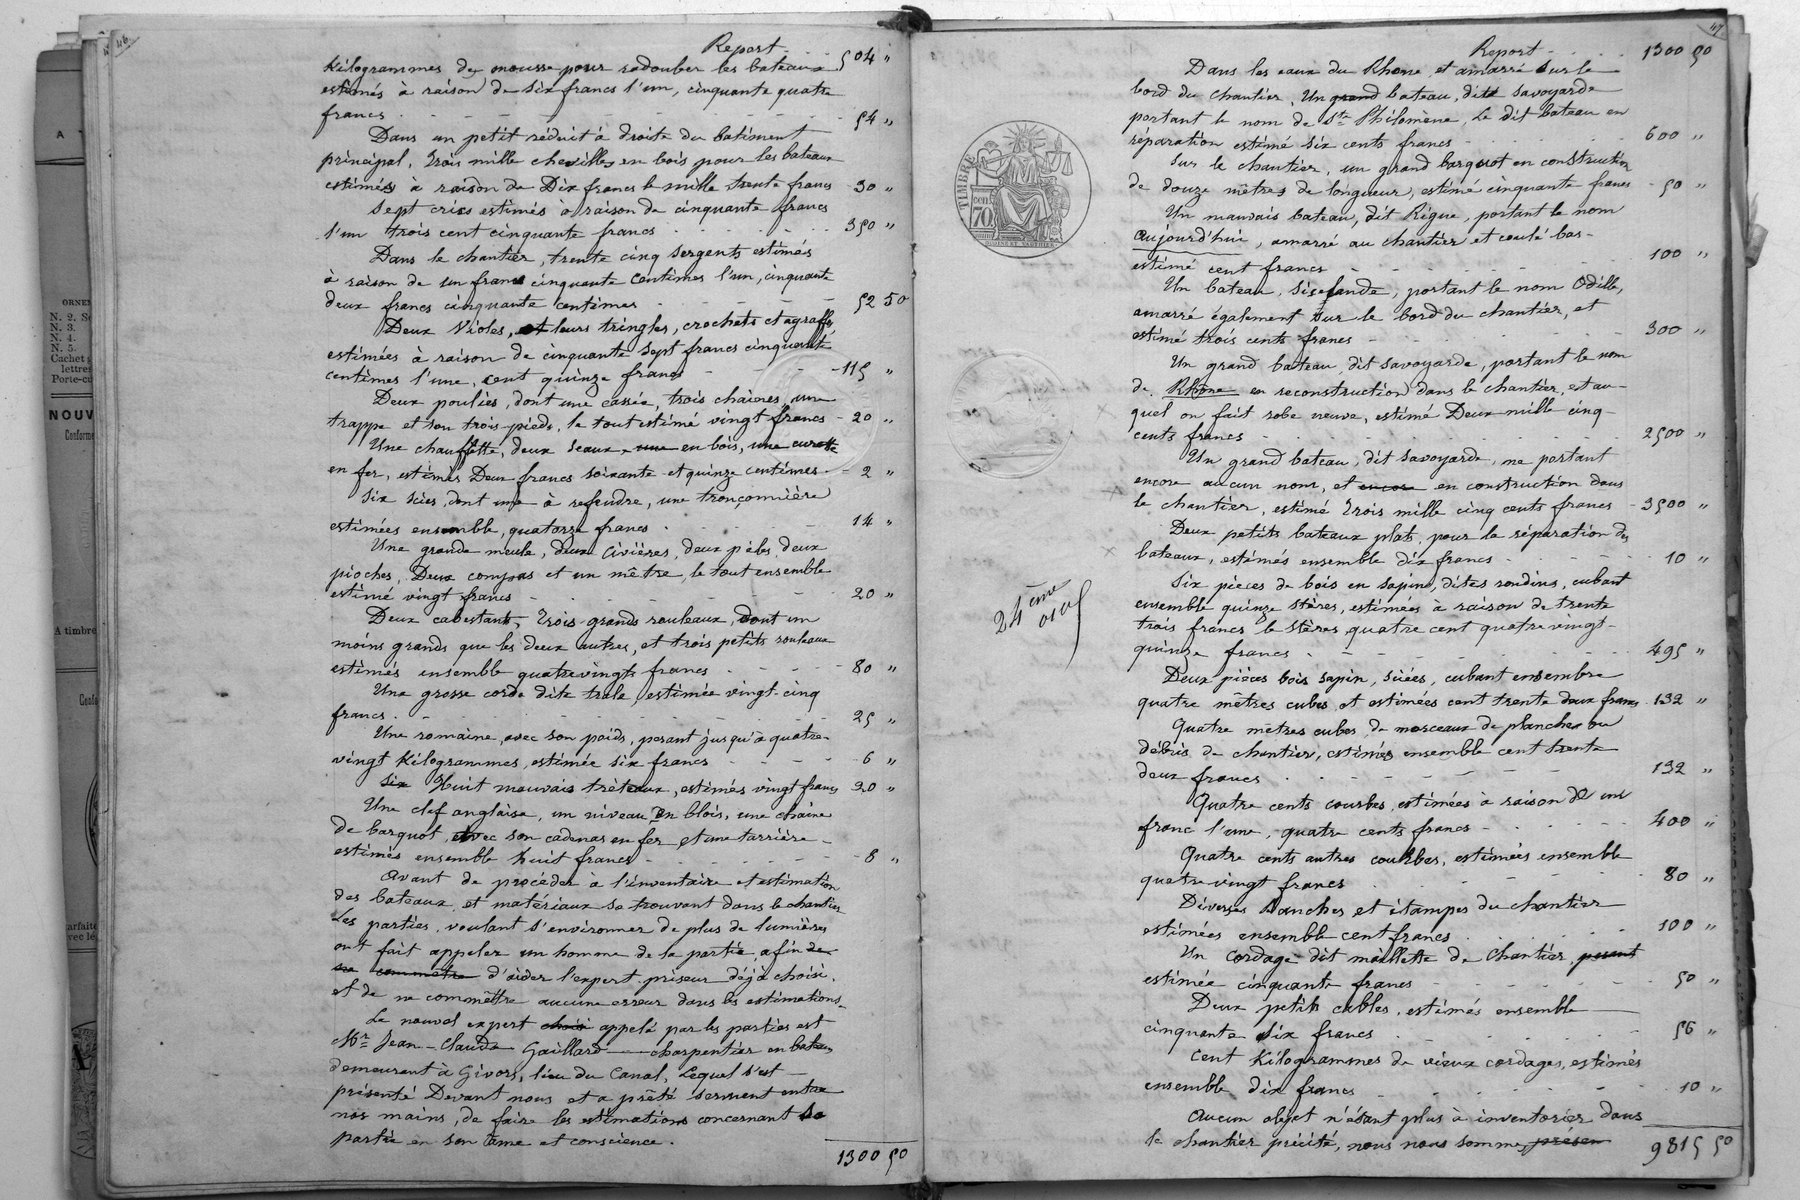 46
Report - 504 "
Kilogrammes de mousse pour radouber les bateaux
estimés à raison de six francs l'un, cinquante quatre
francs - 54 "
Dans un petit réduit à droite du batiment
principal, Trois mille chevilles en bois pour les bateaux
estimées à raison de Dix francs le mille trente francs - 30 "
Sept crics estimés à raison de cinquante francs
l'un trois cent cinquante francs - 350 "
Dans le chantier, trente cinq sergents estimés
à raison de un franc cinquante centimes l'un, cinquante
deux francs cinquante centimes - 52 50
Deux Violes, et leurs tringles, crochets et agraffes,
estimées à raison de cinquante sept francs cinquante
centimes l'une, cent quinze francs - 115 "
Deux poulies, dont une cassée, trois chaines, une
trappe et son trois-pieds, le tout estimé vingt francs - 20 "
Une chauffette, deux seaux en bois, une curette
en fer, estimés Deux francs soixante et quinze centimes - 2 "
Six scies, dont une à refendre, une tronçonnière
estimées ensemble, quatorze francs - 14 "
Une grande meule, deux Civières, deux pèles, deux
pioches, Deux compas et un mètre, le tout ensemble
estimé vingt francs - 20 "
Deux cabestants, Trois grands rouleaux, dont un
moins grands que les deux autres, et trois petits rouleaux
estimés ensemble quatrevingts francs - 80 "
Une grosse corde dite trale, estimée vingt-cinq
francs - 25 "
Une romaine, avec son poids, pesant jusqu'à quatre-
vingt Kilogrammes, estimée six francs - 6 "
Six Huit mauvais tréteaux, estimés vingt francs 20 "
Une clef anglaise, un niveau en blois, une chaine
de barquot, avec son cadenas en fer, et une tarrière -
estimés ensemble huit francs - 8 "
Avant de procéder à l'inventaire et estimation
des bateaux et matériaux se trouvant dans le chantier
Les parties, voulant s'environner de plus de lumières
ont fait appeler un homme de la partie, afin de
ne commettre d'aider l'expert-priseur déjà choisi,
et de ne commettre aucune erreur dans les estimations.
Le nouvel expert choisi appelé par les parties est
Mr Jean-Claude Gaillard charpentier en bateau
demeurant à Givors, lieu du Canal, Lequel s'est -
présenté Devant nous et a prêté serment entre
nos mains, de faire les estimations concernant sa
partie en son âme et conscience.
1300 50
47
Report - 1300 50
Dans les eaux du Rhone, et amarré sur le
bord du chantier, Un grand bateau, dit savoyarde
portant le nom de Ste Philomène, Le dit bateau en
réparation estimé six cents francs - 600 "
Sur le chantier, un grand barquot en construction
de douze mètres de longueur, estimé cinquante francs - 50 "
Un mauvais bateau, dit Rigue, portant le nom
aujourd'hui, amarré au chantier et coulé bas -
estimé cent francs - 100 "
Un bateau, sisselande, portant le nom Odille,
amarré également sur le bord du chantier, et
estimé trois cents francs - 300 "
Un grand bateau, dit savoyarde, portant le nom
de Rhône en reconstruction dans le chantier, et au-
quel on fait robe neuve, estimé Deux mille cinq-
cents francs - 2500 "
Un grand bateau, dit savoyarde, ne portant
encore aucun nom, et encore en construction dans
le chantier, estimé Trois mille cinq cents francs - 3500 "
Deux petits bateaux plats, pour la réparation des
bateaux, estimés ensemble dix francs - 10 "
24ème
Six pièces de bois en sapin, dites rondins, cubant
ensemble quinze stères, estimées à raison de trente
trois francs le stères, quatre cent quatre vingt-
quinze francs - 495 "
Deux pièces bois sapin, sciées, cubant ensembre
quatre mètres cubes, et estimées cent trente deux francs 132 "
Quatre mètres cubes, de morceaux de planches ou
débris de chantier, estimés ensemble cent trente
deux francs - 132 "
Quatre cents courbes, estimées à raison de un
franc l'une, quatre cents francs - 400 "
Quatre cents autres courbes, estimées ensemble
quatre vingt francs - 80 "
Diverses Planches et étampes du chantier
estimées ensemble cent francs - 100 "
Un cordage dit maillette de chantier, pesant
estimée cinquante francs - 50 "
Deux petits cables, estimés ensemble
cinquante six francs - 56 "
Cent Kilogrammes de vieux cordages, estimés
ensemble dix francs - 10 "
Aucun objet n'étant plus à inventorier dans
le chantier précité, nous nous sommes présen
9815 50
TIMBRE
cen
70
A
ORNEM
N. 2. Se
N. 3.
N. 4.
N. 5.
Cachet
lettres
Porte-cu
NOUV
Conforme
A timbre
Confo
arfaite
vec le